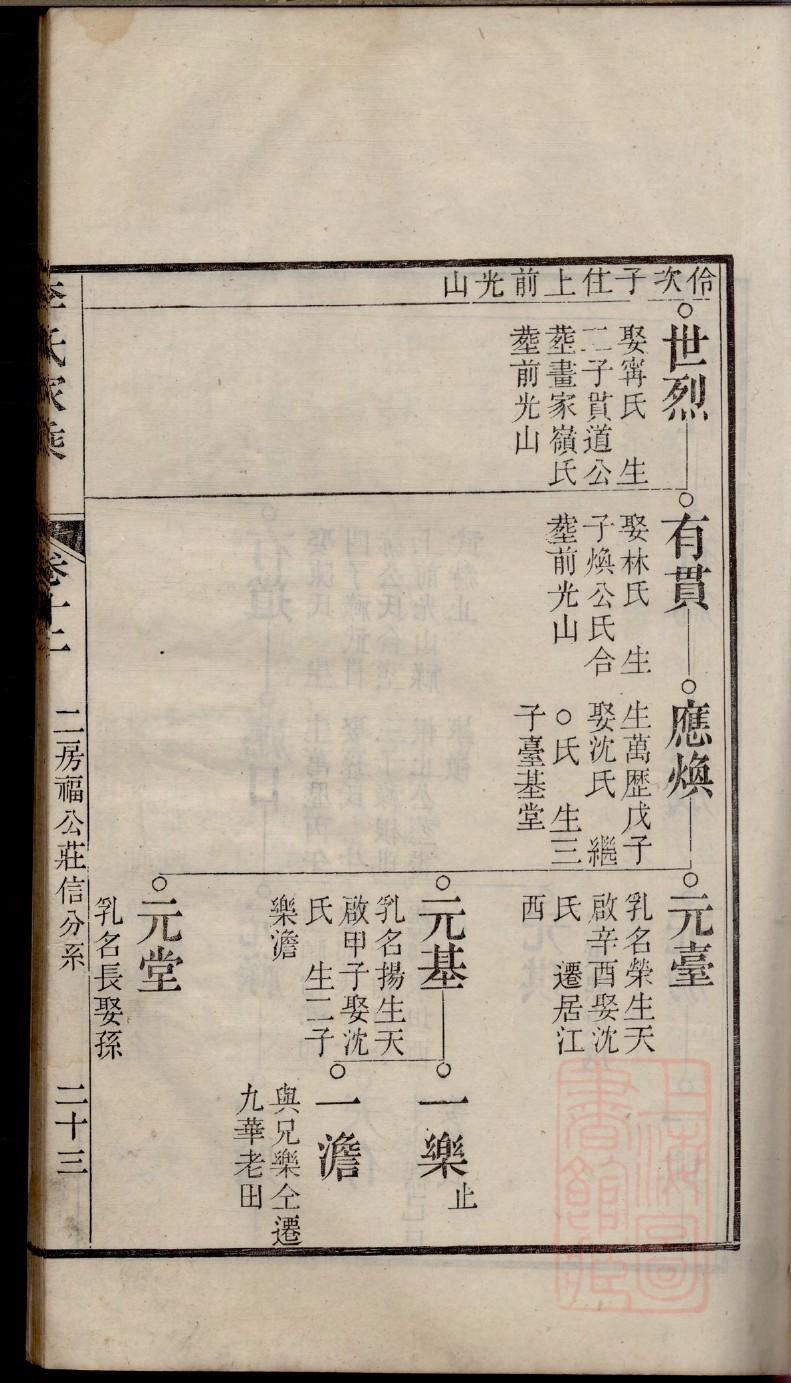 伶次子住上前光山
世烈
娶甯氏 生
二子貫道公
塟畫家嶺氏
塟前光山
有貫
娶林氏 生
子煥公氏合
塟前光山
應煥
生萬歷戊子
娶沈氏 繼
○氏 生三
子臺基堂
元臺
乳名榮生天
啟辛酉娶沈
氏 遷居江
西
元基
乳名揚生天
啟甲子娶沈
氏 生二子
樂澹
一樂
止
一澹
與兄樂仝遷
九華老田
元堂
乳名長娶孫
李氏家乘
卷十二
二房福公莊信分系
二十三
上海圖書館藏